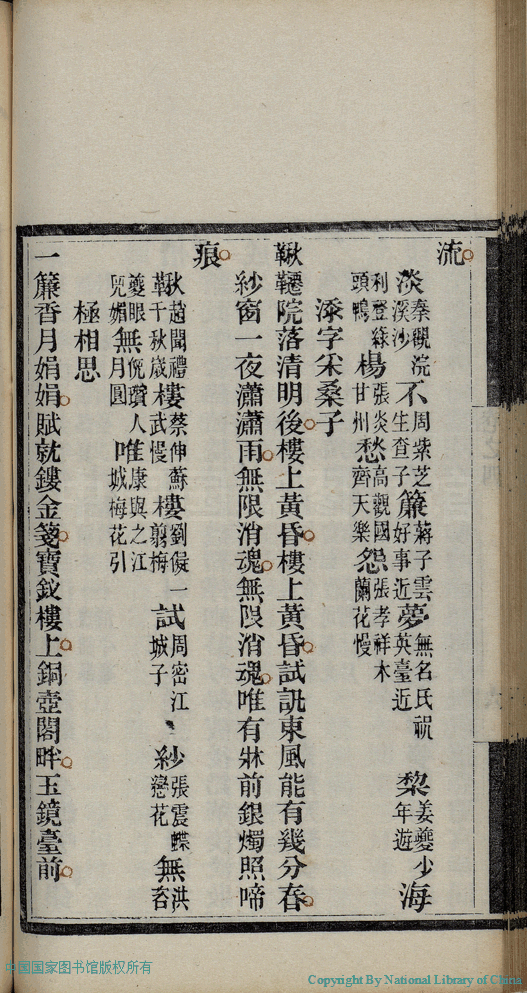 流
淡秦觀浣溪沙不周紫芝生查子簾蔣子雲好事近夢無名氏祝英臺近梨姜夔少年遊海
利登綠頭鴨楊張炎甘州愁高觀國齊天樂怨張孝祥木蘭花慢
添字采桑子
鞦韆院落清明後樓上黃昏樓上黃昏試訊東風能有幾分春
紗窗一夜瀟瀟雨無限消魂無限消魂唯有牀前銀燭照啼
痕
鞦趙聞禮千秋歲樓蔡伸蘇武慢樓劉儗一翦梅試周密江城子紗張震蝶戀花無洪咨
夔眼兒媚無倪瓚人月圓唯康與之江城梅花引
極相思
一簾香月娟娟賦就鏤金箋寶釵樓上銅壺閣畔玉鏡臺前
中国国家图书馆版权所有
Copyright By National Library of China